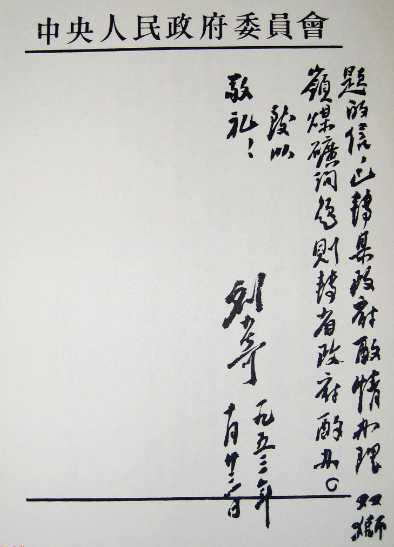 中央人民政府委員會
題的信，已轉县政府酌情办理 双獅
嶺煤礦问题则轉省政府酌办。
致以
敬礼！
刘少奇
一九五三年
十月廿三日